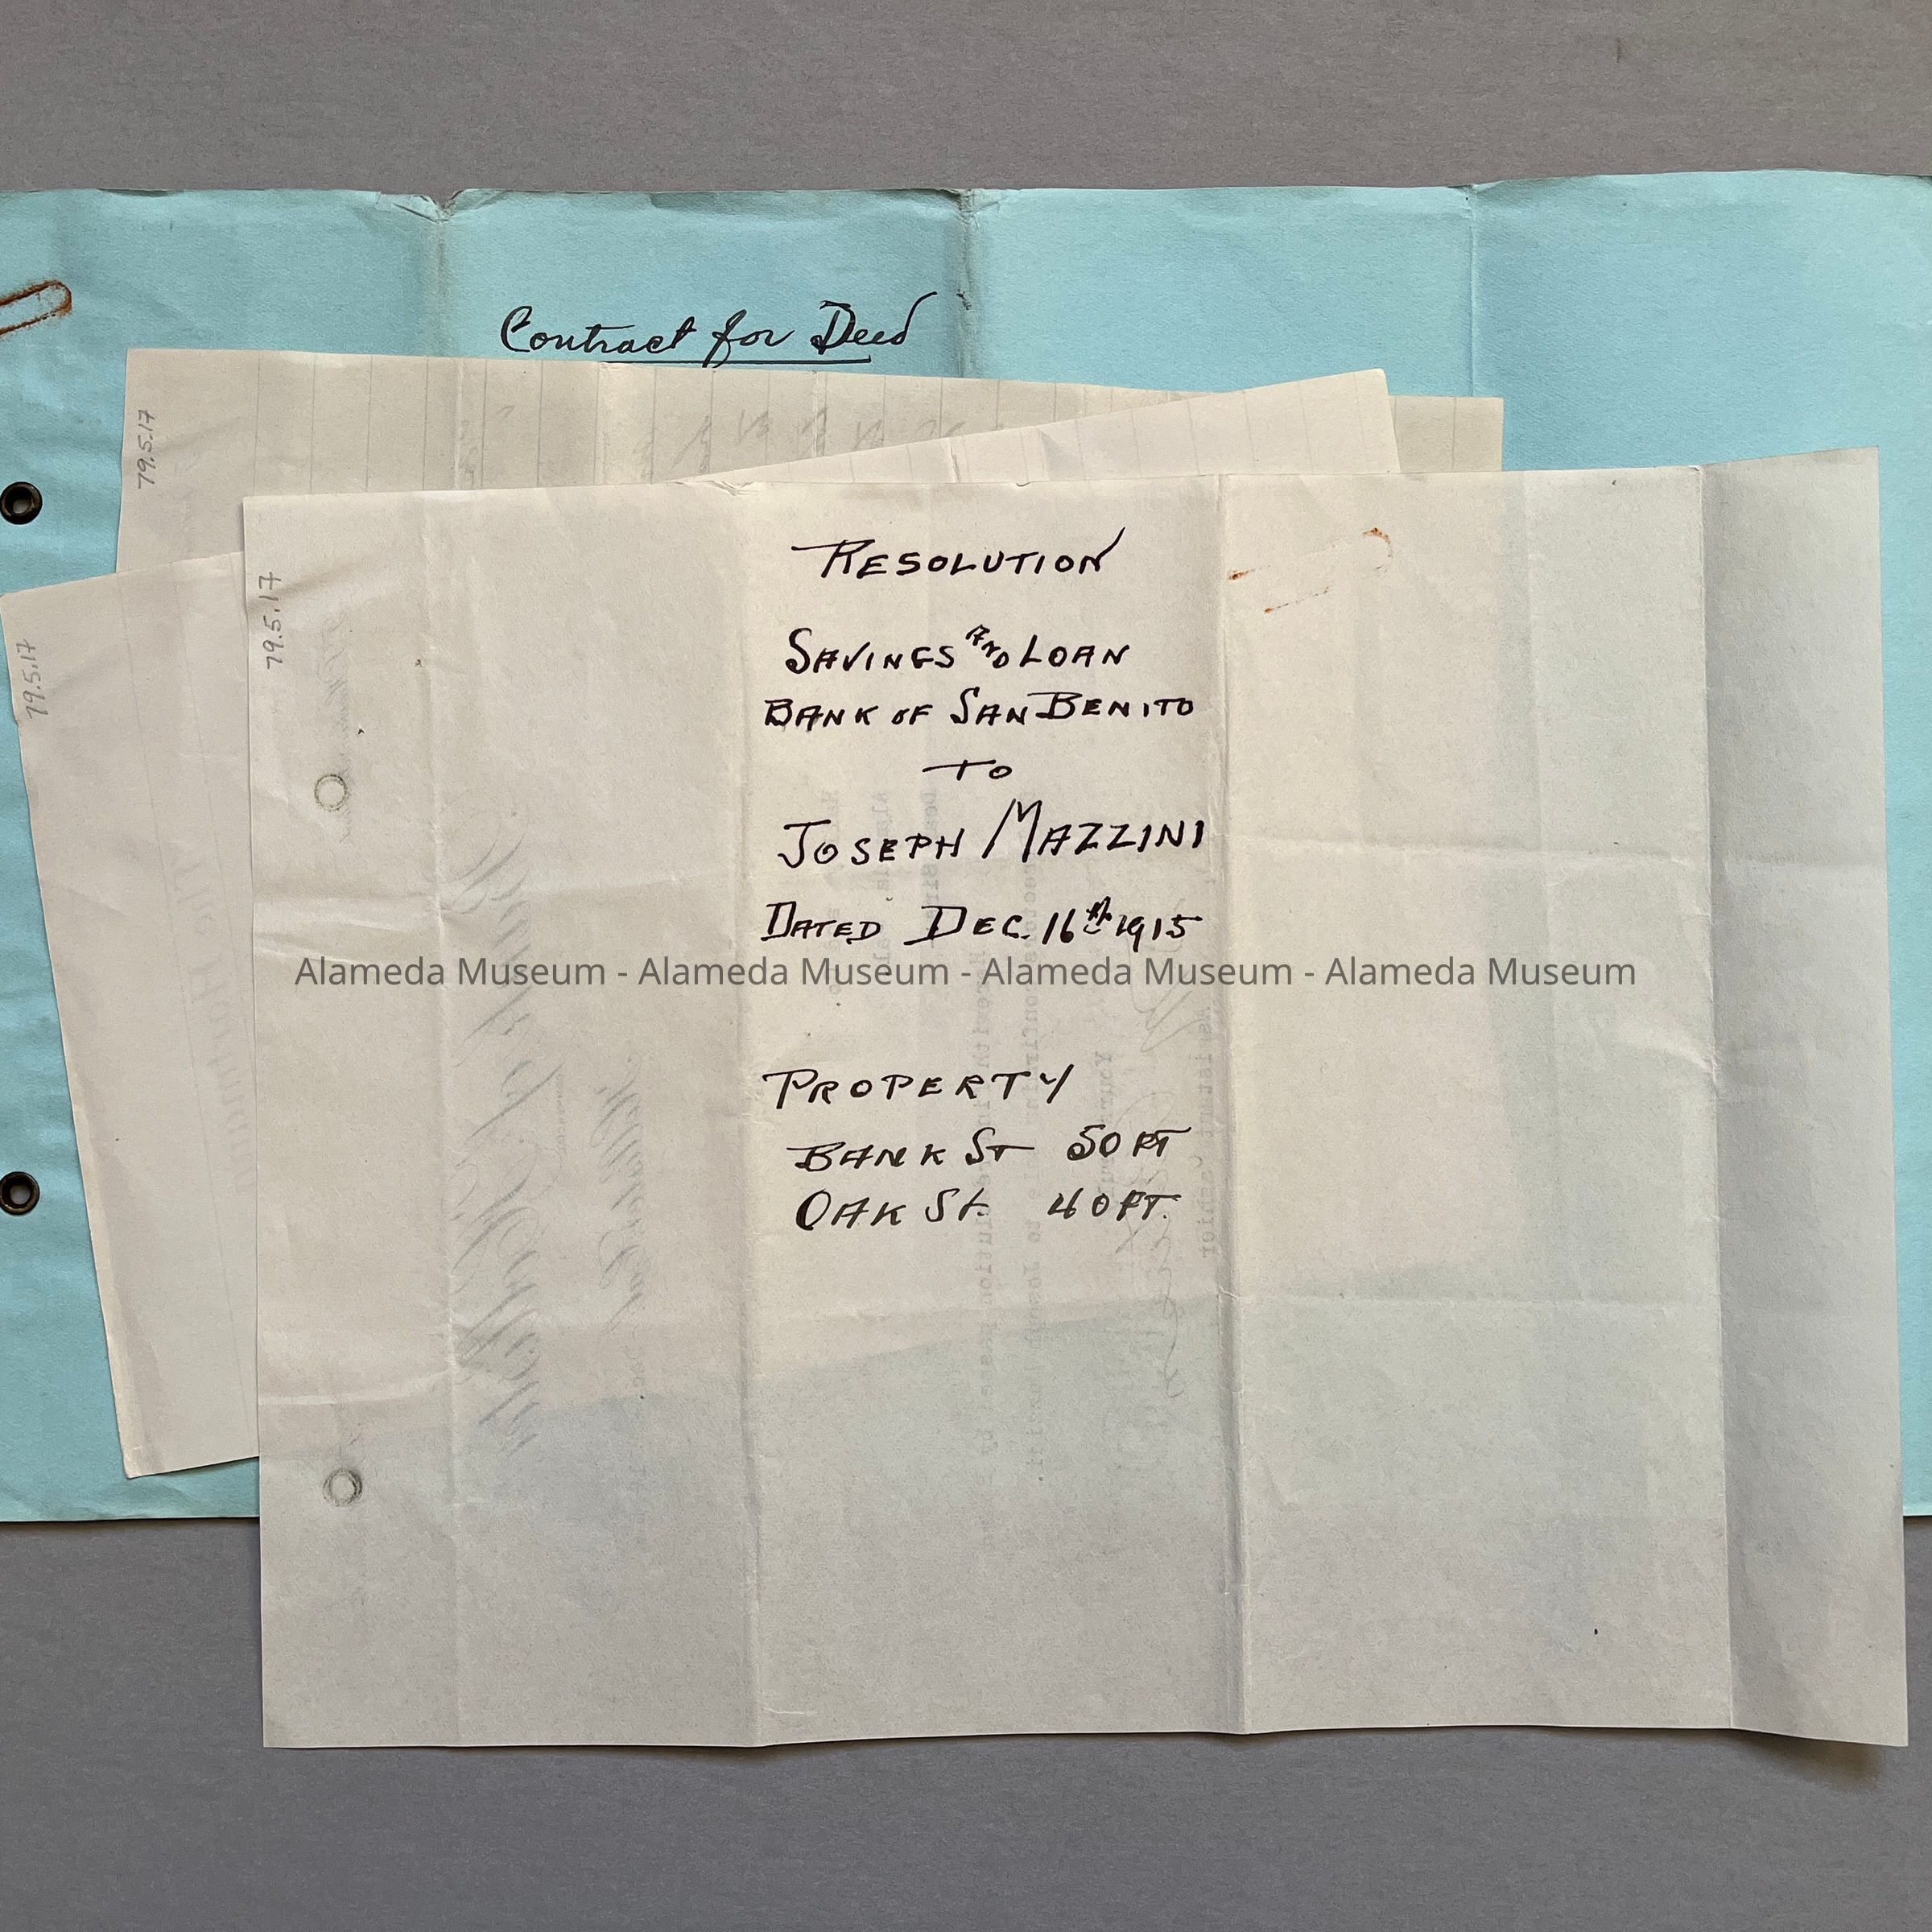 Contract for Deed
79.5.17
79.5.17
79.5.17
RESOLUTION
SAVINGS AND LOAN
BANK OF SAN BENITO
TO
JOSEPH MAZZINI
DATED DEC. 16th 1915
Alameda Museum - Alameda Museum - Alameda Museum - Alameda Museum
PROPERTY
BANK ST 50 FT
OAK St. 40 FT.